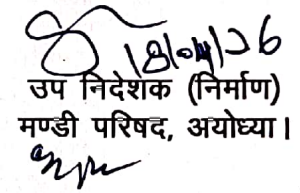 18/04/26
उप निदेशक (निर्माण)
मण्डी परिषद, अयोध्या।